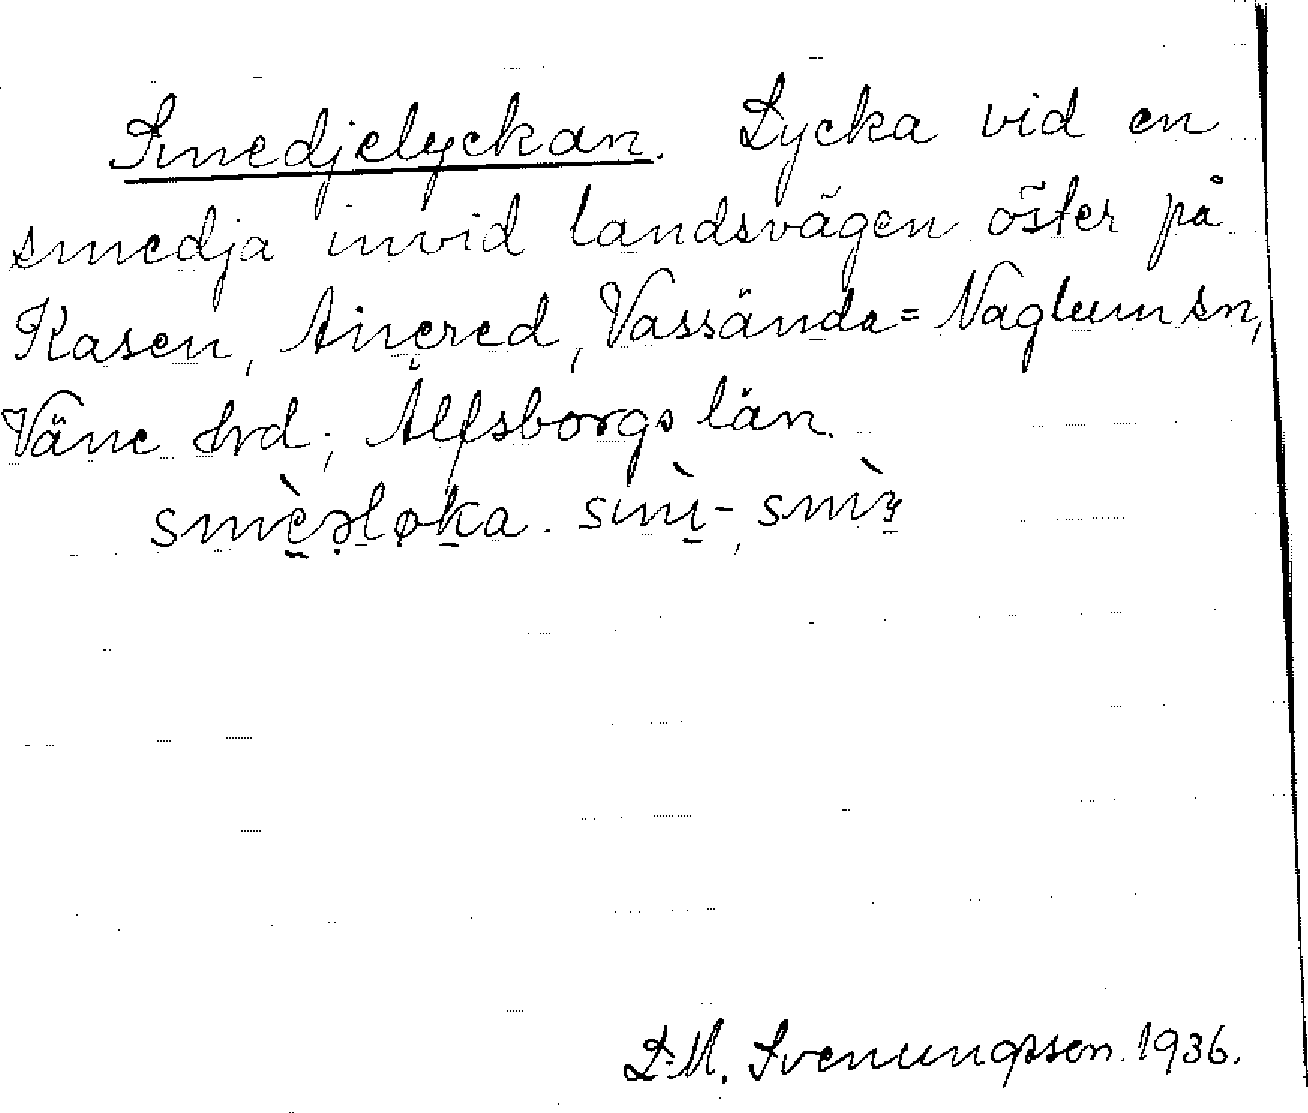 Smedjelyckan. Lycka vid en
smedja invid landsvägen öster på
Kasen, Ainered, Vassända=Naglum sn,
Väne hrd, Älfsborgs län.
smè̱ə̣lo̱ka. smì̱-, smì
L.M. Svenungsson 1936.